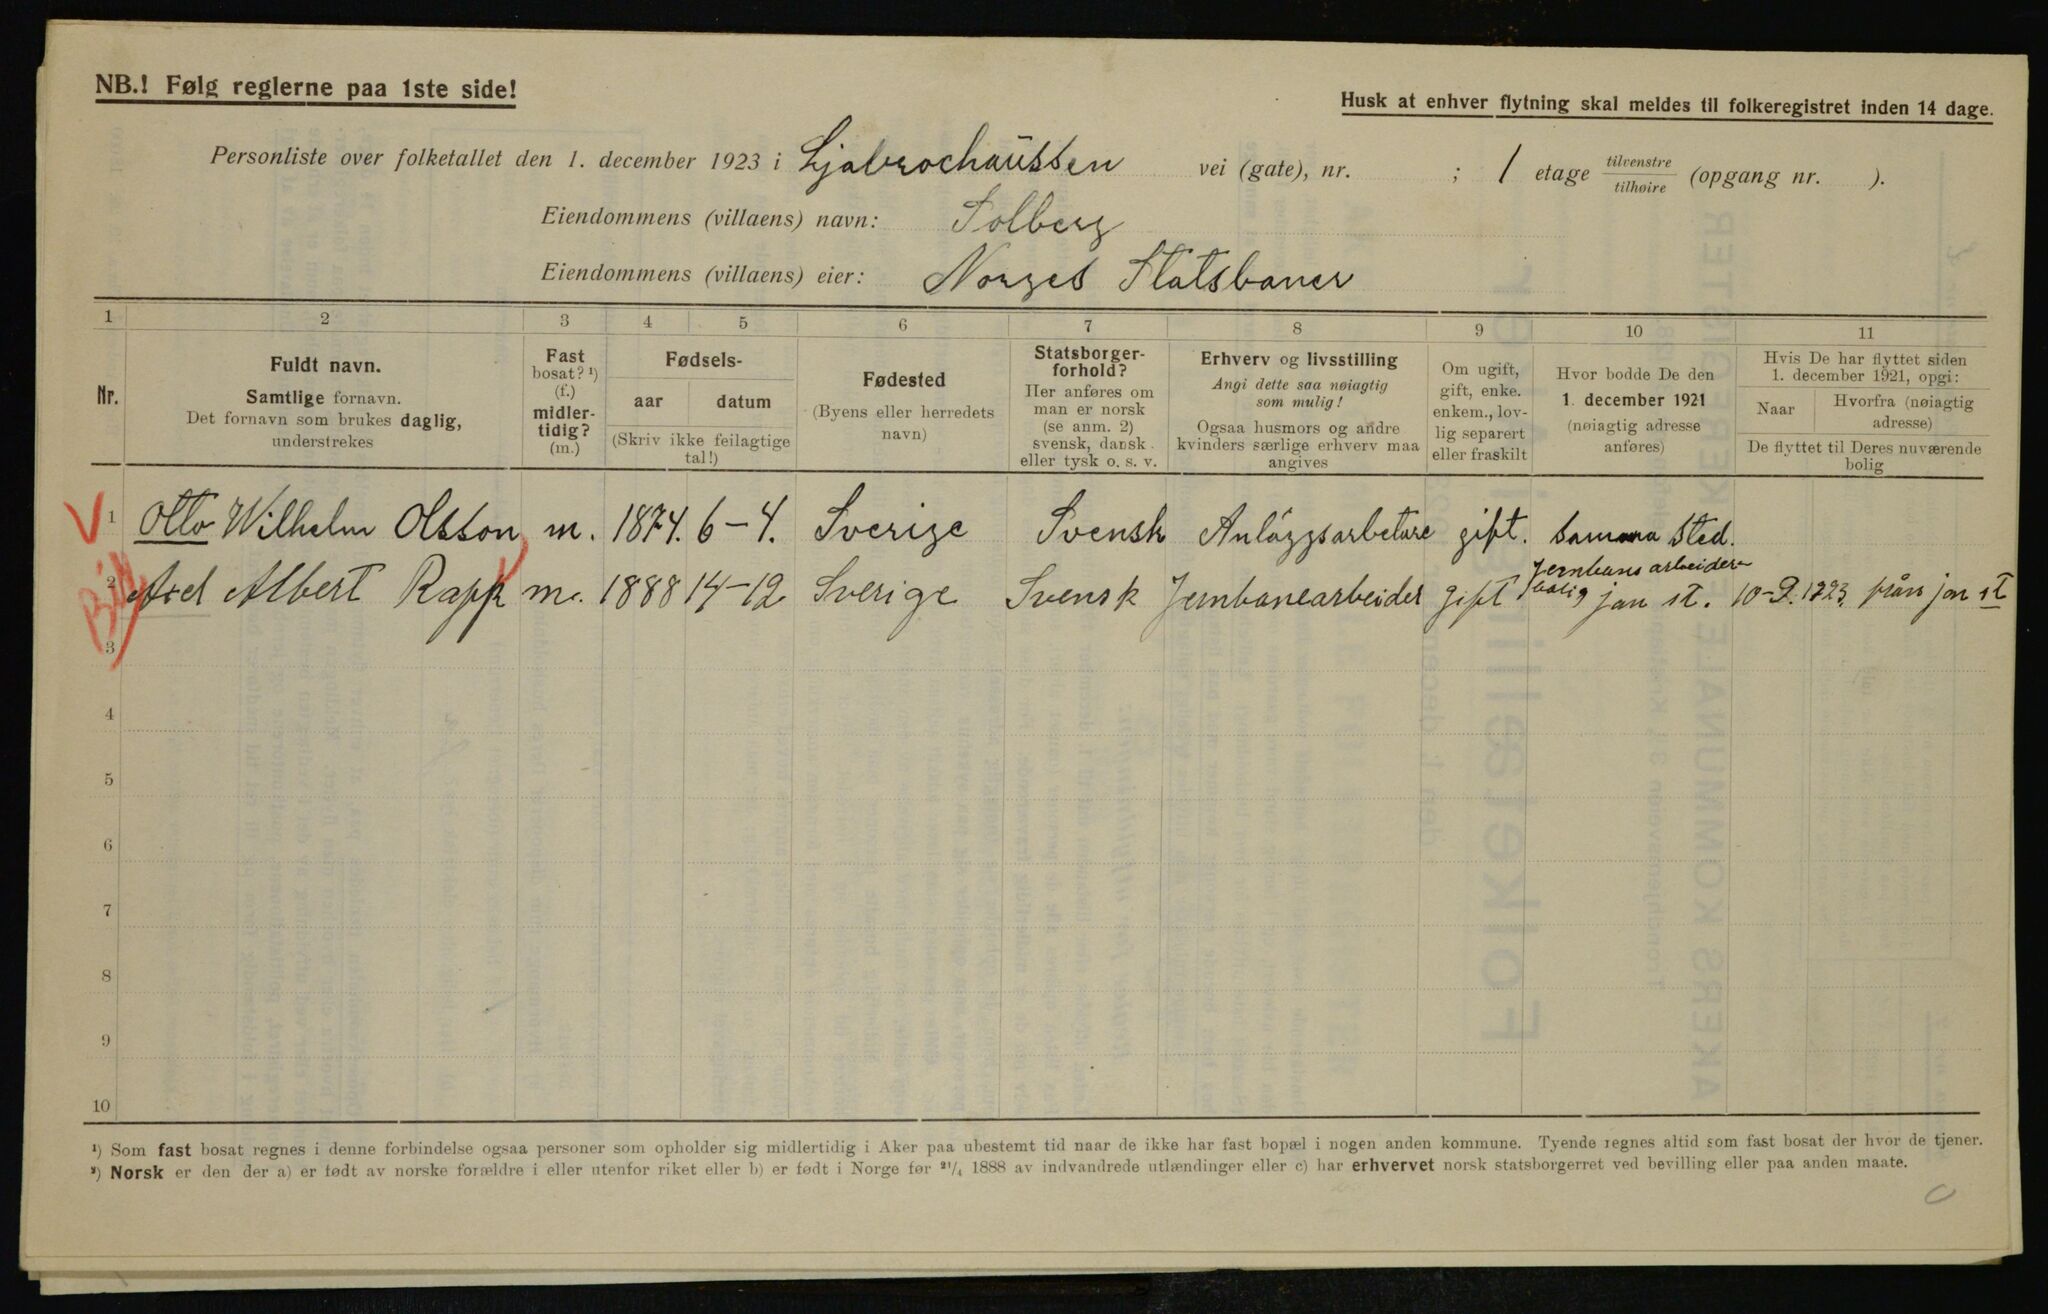 NB.! Følg reglerne paa 1ste side!
Husk at enhver flytning skal meldes til folkeregistret inden 14 dage.
Personliste over folketallet den 1. december 1923 i Ljabrochaussen vei (gate), nr. ; 1 etage tilvenstre/tilhøire (opgang nr. ).
Eiendommens (villaens) navn: Solberg
Eiendommens (villaens) eier: Norges Statsbaner
1 2 3 4 5 6 7 8 9 10 11
Nr.
Fuldt navn.
Samtlige fornavn.
Det fornavn som brukes daglig,
understrekes
Fast
bosat? ¹)
(f.)
midler-
tidig?
(m.)
Fødsels-
aar datum
(Skriv ikke feilagtige
tal!)
Fødested
(Byens eller herredets
navn)
Statsborger-
forhold?
Her anføres om
man er norsk
(se anm. 2)
svensk, dansk
eller tysk o. s. v.
Erhverv og livsstilling
Angi dette saa nøiagtig
som mulig!
Ogsaa husmors og andre
kvinders særlige erhverv maa
angives
Om ugift,
gift, enke.
enkem., lov-
lig separert
eller fraskilt
Hvor bodde De den
1. december 1921
(nøiagtig adresse
anføres)
Hvis De har flyttet siden
1. december 1921, opgi:
Naar Hvorfra (nøiagtig
adresse)
De flyttet til Deres nuværende
bolig
1 Otto Wilhelm Olsson m. 1874. 6-4. Sverige Svensk Anläggsarbetare gift. Samma Sted.
2 Axel Albert Rapp m. 1888 14-12 Sverige Svensk Jernbanearbeider gift Jernbans arbeider jan st. 10-2. 1923. från jan st
3
4
5
6
7
8
9
10
¹) Som fast bosat regnes i denne forbindelse ogsaa personer som opholder sig midlertidig i Aker paa ubestemt tid naar de ikke har fast bopæl i nogen anden kommune. Tyende regnes altid som fast bosat der hvor de tjener.
²) Norsk er den der a) er født av norske forældre i eller utenfor riket eller b) er født i Norge før ²¹/₄ 1888 av indvandrede utlændinger eller c) har erhvervet norsk statsborgerret ved bevilling eller paa anden maate.